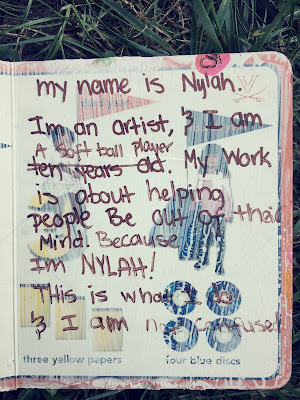 my name is Nylah.
Im an artist, & I am
A Soft ball player
ten years old. My Work
is about helping
people Be out of their
Mind. Because
Im NYLAH!
This is what I do
& I am not confused
three yellow papers
four blue discs